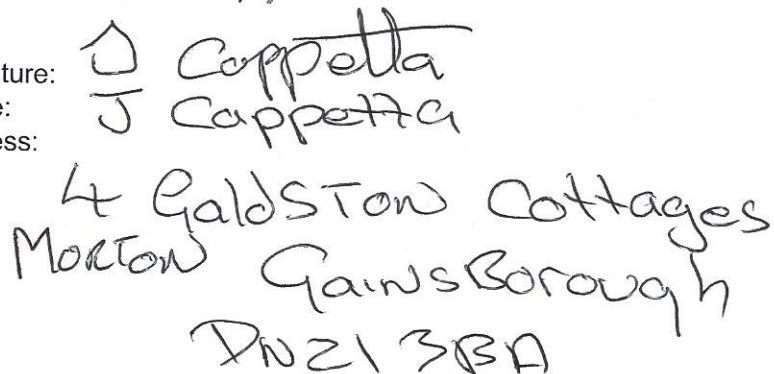 ture: J Cappetta
e: J Cappetta
ess:
4 GaldSTON Cottages
MORTON GainsBorough
DN21 3BA